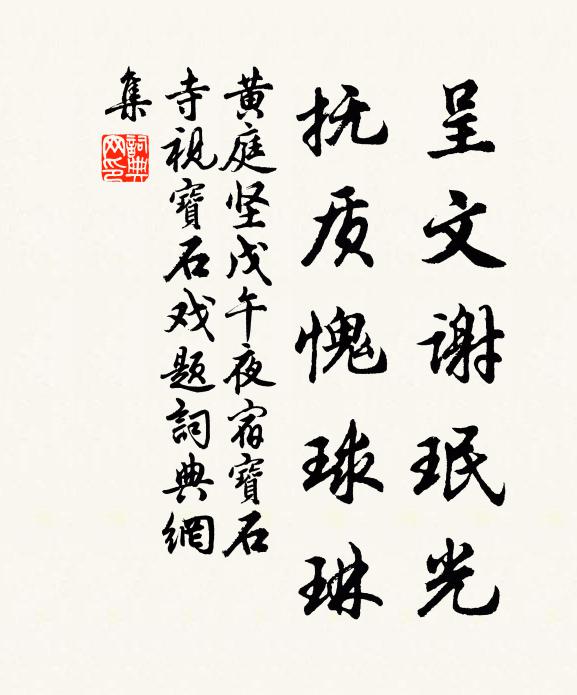 呈文谢珉光
抚质愧球琳
黄庭坚戊午夜宿寶石
寺視寶石戏题詞典網
集
詞典網印